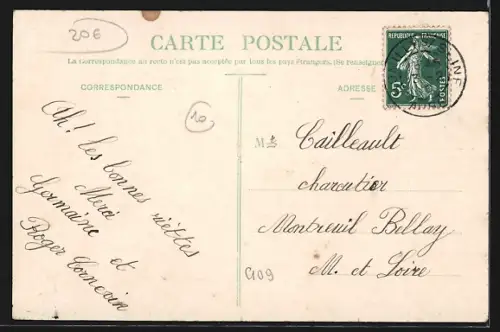 20€
CARTE POSTALE
La Correspondance au recto n'est pas acceptée par tous les pays Étrangers. (Se renseigner
CORRESPONDANCE
ADRESSE
REPUBLIQUE FRANÇAISE
5c
POSTES
10
Ah! les bonnes
Merci
Germaine et
Roger
Mrs Cailleault
charcutier
Montreuil Bellay
M. et Loire
G109